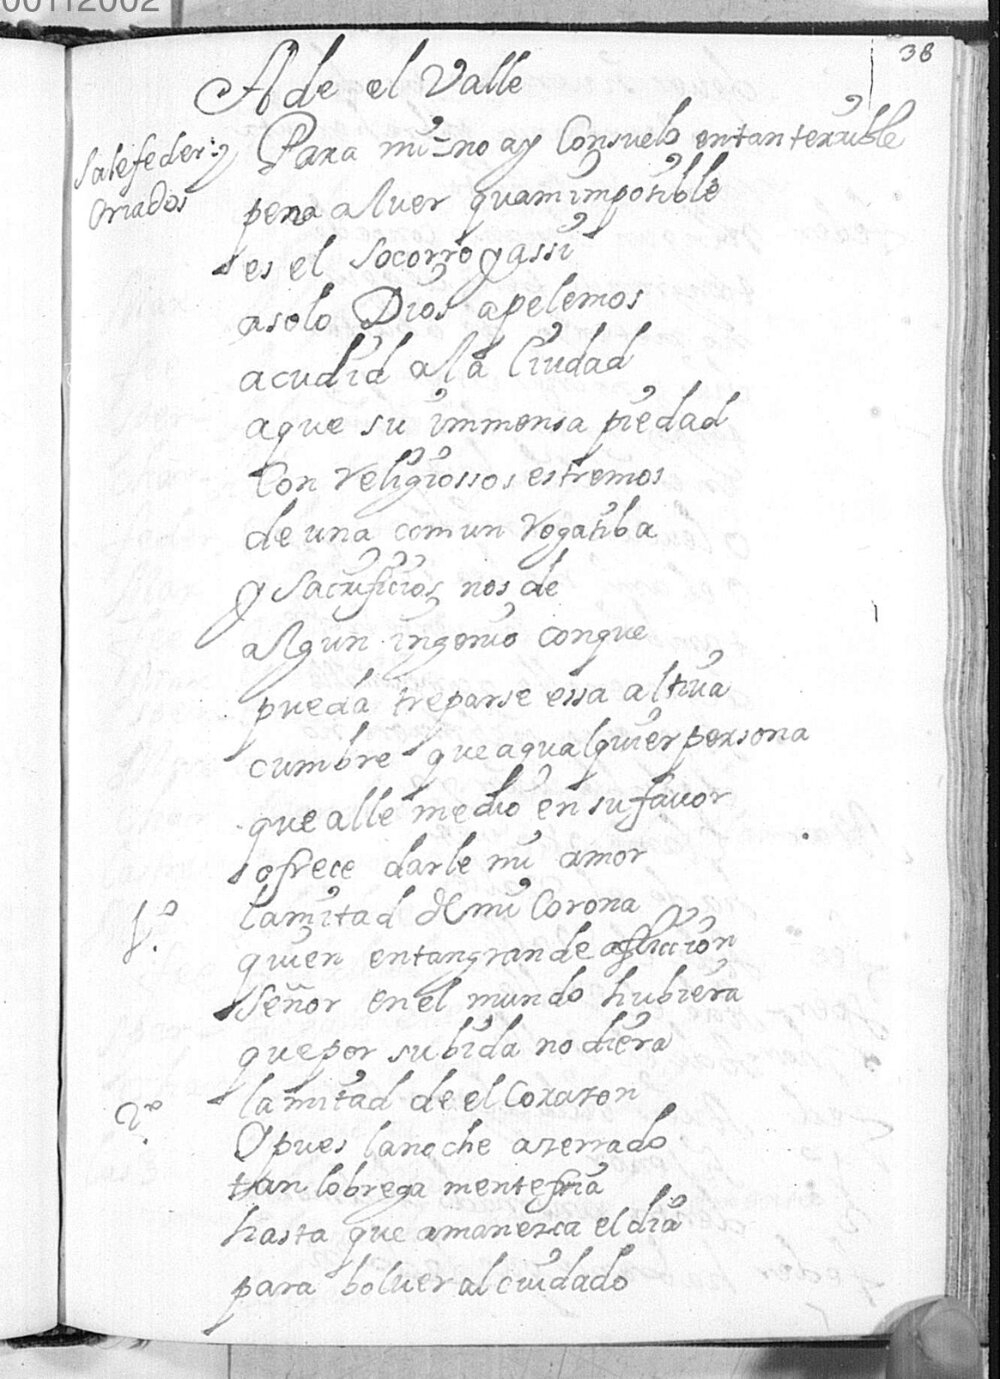 00112002
38
A de el Valle
Sale feder.º y
Criados
Para mi no ay Consuelo en tan terrible
pena al ver quam imposible
es el socorro y assi
a solo Dios apelemos
acudid a la Ciudad
a que su immensa piedad
Con Religiossos estremos
de una comun Rogatiba
y Sacrificios nos de
algun ingenio con que
pueda treparse essa altiva
cumbre que a qualquier persona
que alle medio en su favor
ofrece darle mi amor
la mitad de mi Corona
1.º
quien en tan grande afliccion
Señor en el mundo hubiera
que por su bida no diera
la mitad de el Corazon
2.º
Y pues la noche a zerrado
tan lobrega mente fria
hasta que amanezca el dia
para bolver al cuidado